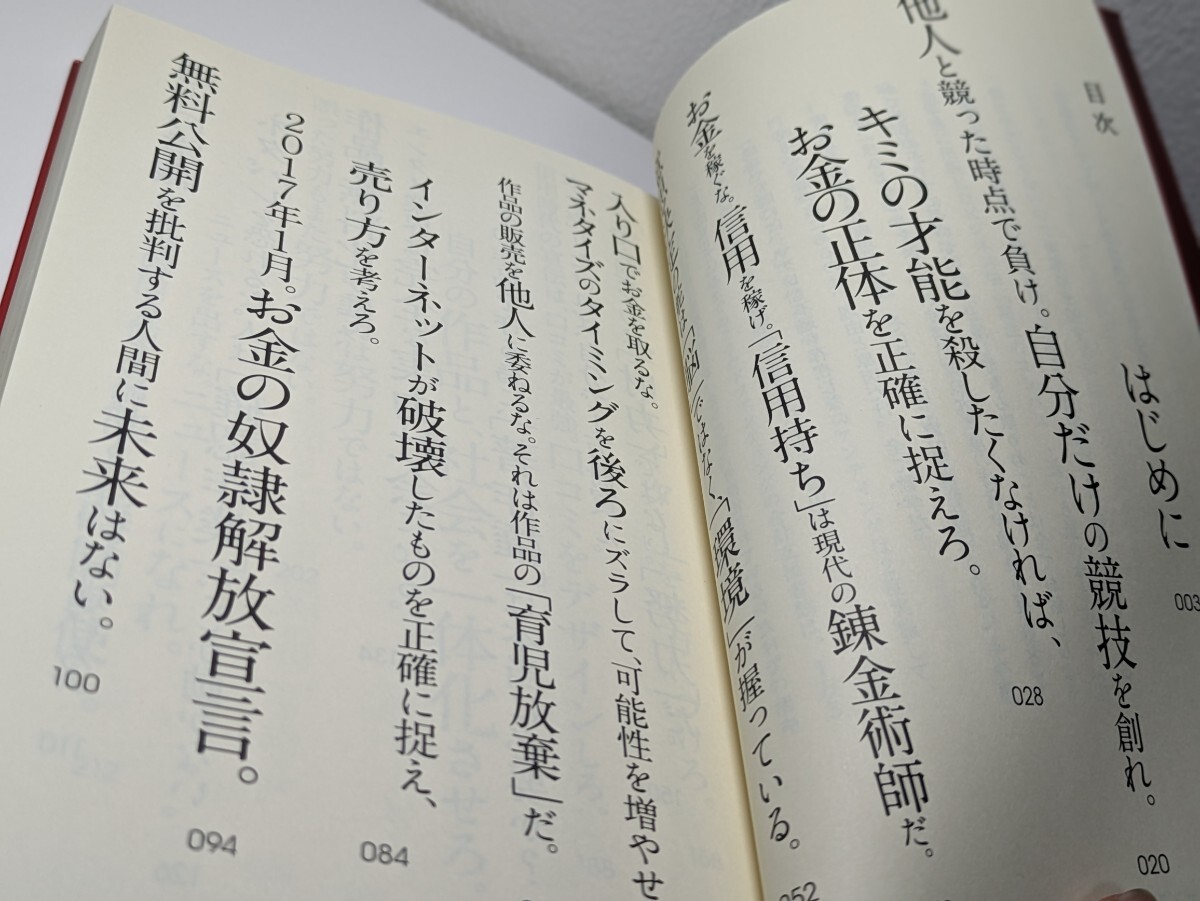 目次
はじめに
003
他人と競った時点で負け。自分だけの競技を創れ。
020
キミの才能を殺したくなければ、
お金の正体を正確に捉えろ。
028
お金を稼ぐな。信用を稼げ。「信用持ち」は現代の錬金術師だ。
ではなく、「環境」が握っている。
052
入り口でお金を取るな。
マネタイズのタイミングを後ろにズラして、可能性を増やせ
作品の販売を他人に委ねるな。それは作品の「育児放棄」だ。
インターネットが破壊したものを正確に捉え、
売り方を考えろ。
084
2017年1月。お金の奴隷解放宣言。
094
無料公開を批判する人間に未来はない。
100